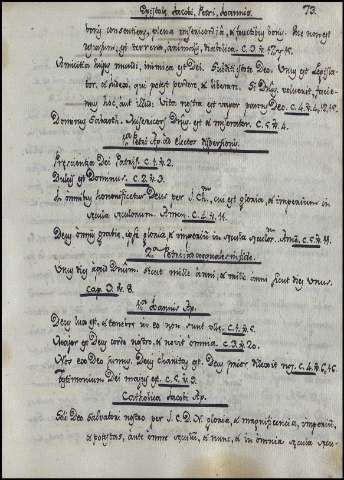 Epistolæ Jacobi, Petri, Joannis. 73.
bonis consentiens, plena misericordiâ, et fructibus bonis. Hæc non est
sed terrena, animalis, diabolica. C. 3. v. 17. 15.
Amicitia hujus mundi, inimica est Dei. Subditi estote Deo. Unus est Legisla-
tor, et Judex, qui potest perdere, et liberare. Si Dñus voluerit, facie-
mus hoc, aut illud. Vita nostra est vapor C. 4. v. 4.
Dominus Sabaoth. Misericors Dñus est, et miserator. C. 5. v. 4.
1ª Petri Ap. ad electos dispersionis.
Præscientia Dei Patris. C. 1. v. 2.
Dulcis est Dominus. C. 2. v. 3.
In omnibus honorificetur Deus per J. Ch. cui est gloria, et imperium in
sæcula sæculorum. Amen. C. 4. v. 11.
Deus omnis gratiæ, ipsi gloria, et imperium in sæcula sæculor. Amen. C. 5. v. 11.
2ª Petri
Unus dies apud Dnûm sicut mille anni, et mille anni sicut dies unus.
Cap. 3. v. 8.
1ª Joannis Ap.
Deus lux est, et tenebræ in eo non sunt ullæ. C. 1. v. 5.
Major est Deus corde nostro, et novit omnia. C. 3. v. 20.
Nos ex Deo sumus. Deus charitas est. Deus prior dilexit nos. C. 4. v. 6, 16.
Testimonium Dei majus est. C. 5. v. 9.
Catholica Jacobi Ap.
Soli Deo Salvatori nostro per J. C. D. N. gloria, et magnificentia, imperium,
et potestas, ante omne sæculum, et nunc, et in omnia sæcula sæcu-